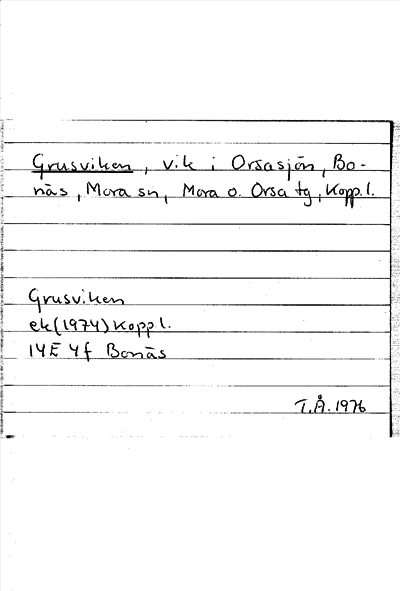 Grusviken, vik i Orsasjön, Bo-
näs, Mora sn, Mora o. Orsa tg, Kopp. l.
Grusviken
ek (1974) Kopp l.
14E 4f Bonäs
T.Å. 1976